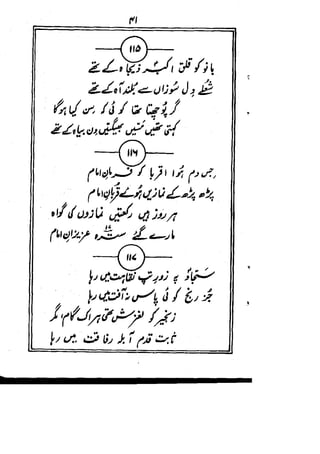 ۴۱
۱۱۵
بانو کو قلق اکبر ذیجاہ کے تھے
شعلے دلِ سوزاں سے بلند آہ کے تھے
گر پوچھتا تھا کوئی کہ سن کیا ہوگا
کہتی تھیں مسیں بھیگتیں دن بیاہ کے تھے
۱۱۶
جس دم ہوا اقربا کو فرمان امام
پڑھ پڑھ کے نمازیں ہوئے قربان امام
ہر روز ہیں رکعتیں نمازوں کی گواہ
مارے گئے سترہ عزیزان امام
۱۱۷
سجاد پہ زور تپ نقاہت میں رہا
جز رنج کوئی پاس نہ آفت میں رہا
زنجیر کو لغزش تھی ہر اک گام مگر
ثابت قدم آبلہ رفاقت میں رہا